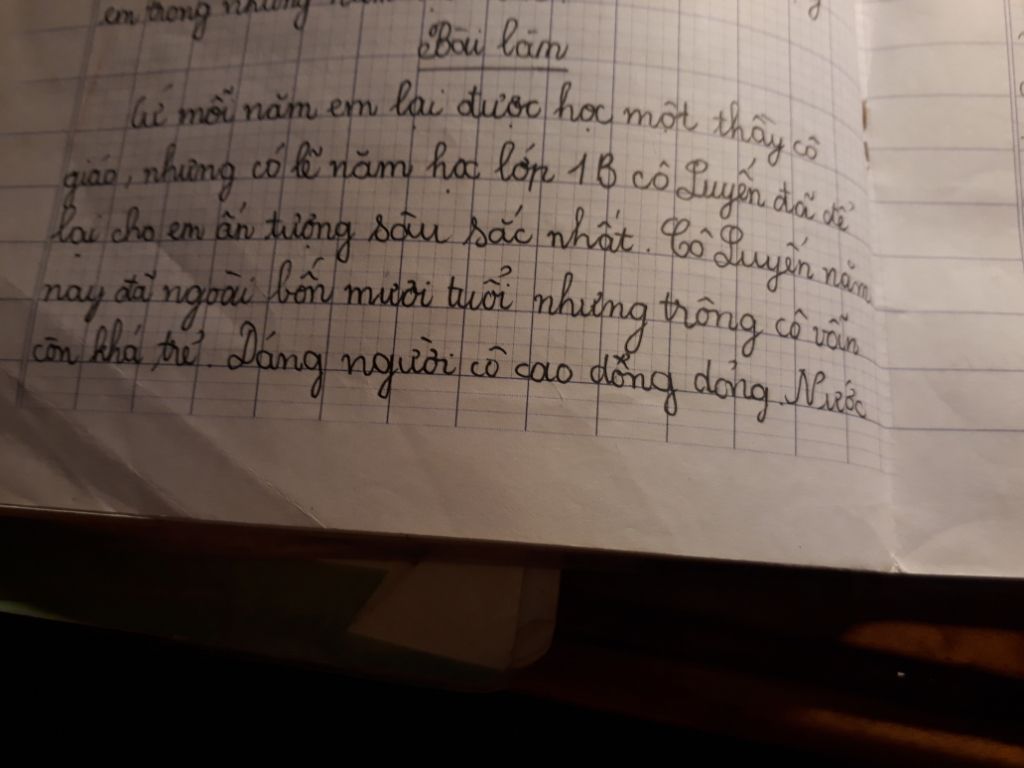 em trong những
Bài làm
Cứ mỗi năm em lại được học một thầy cô
giáo, nhưng có lẽ năm học lớp 1B cô Quyến đã để
lại cho em ấn tượng sâu sắc nhất. Cô Quyến năm
nay đã ngoài bốn mươi tuổi nhưng trông cô vẫn
còn khá trẻ. Dáng người cô cao dỏng dỏng. Nước